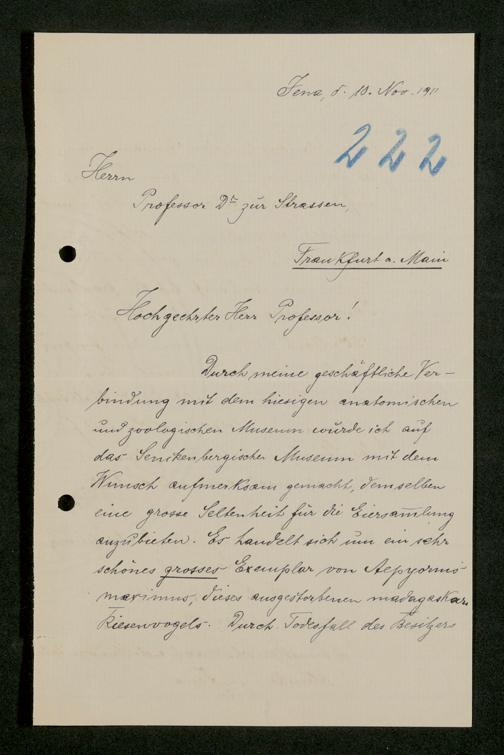 Jena, d. 10. Nov. 1911
222
Herrn
Professor Dr zur Strassen,
Frankfurt a. Main
Hochgeehrter Herr Professor!
Durch meine geschäftliche Ver-
bindung mit dem hiesigen anatomischen
und zoologischen Museum wurde ich auf
das Senkenbergische Museum mit dem
Wunsch aufmerksam gemacht, demselben
eine grosse Seltenheit für die Eiersammlung
anzubieten. Es handelt sich um ein sehr
schönes grosses Exemplar von Aepyornis
maximus, dieses ausgestorbenen madagaskar.
Riesenvogels. Durch Todesfall des Besitzers